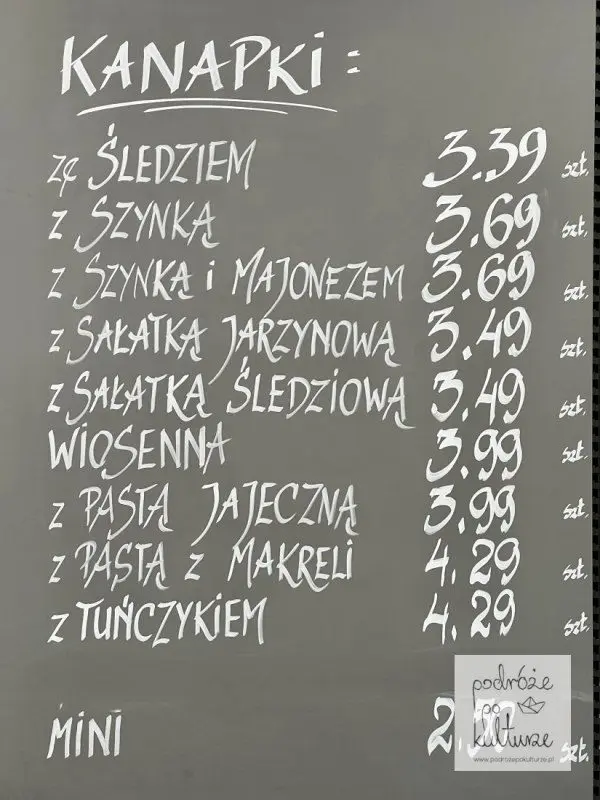 KANAPKI:
zę ŚLEDZIEM 3.39 szt.
z SZYNKĄ 3.69 szt.
z SZYNKĄ i MAJONEZEM 3.69 szt.
z SAŁATKĄ JARZYNOWĄ 3.49 szt.
z SAŁATKĄ ŚLEDZIOWĄ 3.49 szt.
WIOSENNA 3.99 szt.
z PASTĄ JAJECZNĄ 3.99 szt.
z PASTĄ z MAKRELI 4.29 szt.
z TUŃCZYKIEM 4.29 szt.
MINI szt.
podróże
po
kulturze
www.podrozepokulturze.pl